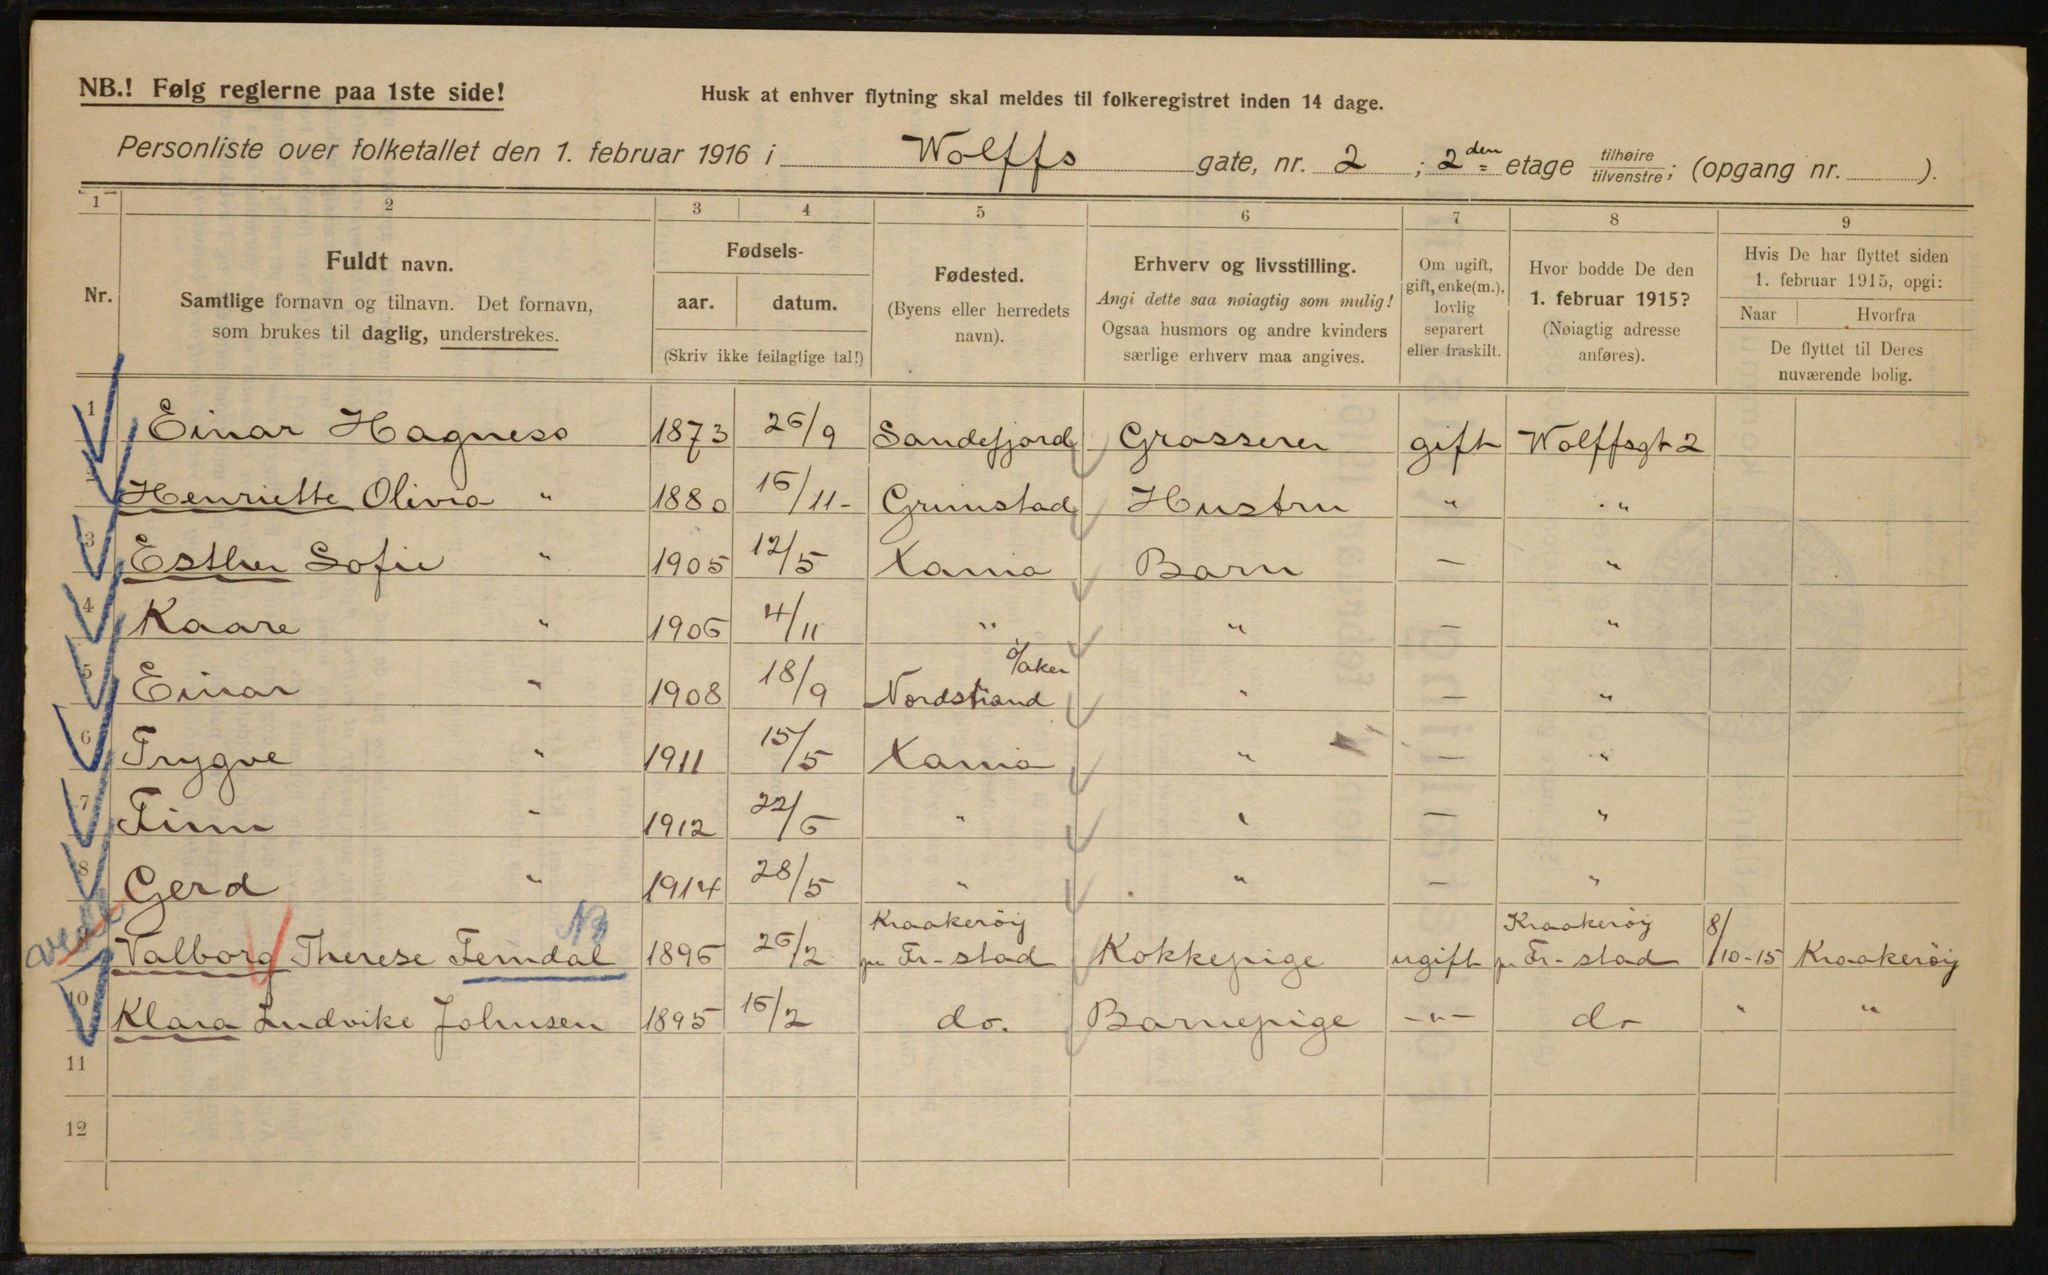 NB.! Følg reglerne paa 1ste side!
Husk at enhver flytning skal meldes til folkeregistret inden 14 dage.
Personliste over folketallet den 1. februar 1916 i Wolffs gate, nr. 2 ; 2den etage tilhøire/tilvenstre; (opgang nr. ).
1 2 3 4 5 6 7 8 9
Nr.
Fuldt navn.
Samtlige fornavn og tilnavn. Det fornavn,
som brukes til daglig, understrekes.
Fødsels-
aar. datum.
(Skriv ikke feilagtige tal!)
Fødested.
(Byens eller herredets
navn).
Erhverv og livsstilling.
Angi dette saa nøiagtig som mulig!
Ogsaa husmors og andre kvinders
særlige erhverv maa angives.
Om ugift,
gift, enke(m.),
lovlig
separert
eller fraskilt.
Hvor bodde De den
1. februar 1915?
(Nøiagtig adresse
anføres).
Hvis De har flyttet siden
1. februar 1915, opgi:
Naar Hvorfra
De flyttet til Deres
nuværende bolig.
1 Einar Hagness 1873 26/9 Sandefjord Grosserer gift Wolffsgt 2
2 Henriette Olivia " 1880 16/11- Grimstad Hustru " "
3 Esther Sofie " 1905 12/5 Xania Barn — "
4 Kaare " 1906 4/11 " " — "
5 Einar " 1908 18/9 Nordstrand ø/aker " — "
6 Trygve " 1911 15/5 Xania " — "
7 Finn " 1912 22/6 " " — "
8 Gerd " 1914 28/5 " " — "
NB
Valborg Therese Femdal 1896 26/2 Kraakerøy pr Fr-stad Kokkepige ugift Kraakerøy pr Fr-stad 8/10-15 Kraakerøy
10 Klara Ludvike Johnsen 1895 16/2 do. Barnepige -"- do " "
11
12